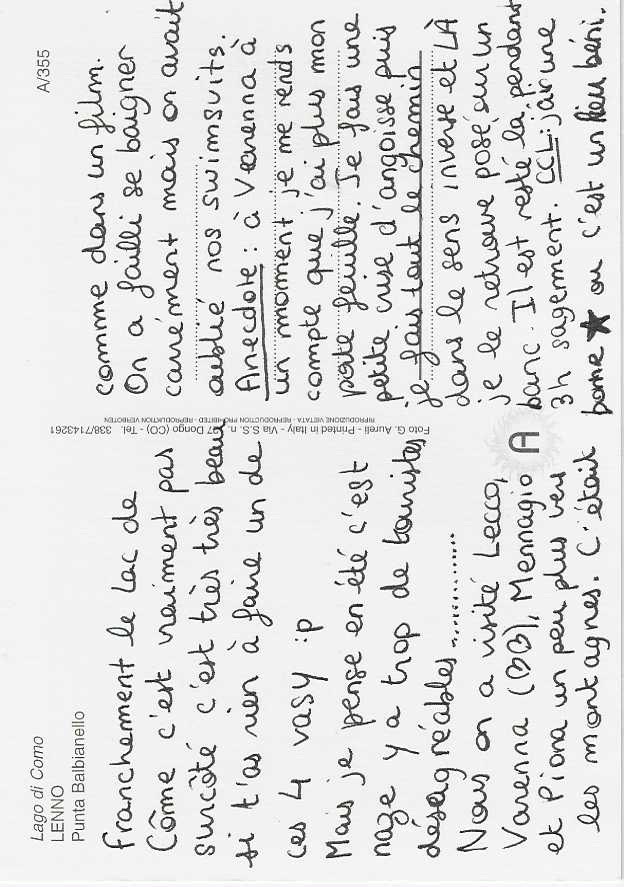 Lago di Como
LENNO
Punta Balbianello
A/355
Franchement le Lac de
Côme c'est vraiment pas
surcôté c'est très très beau
si t'as rien à faire un de
ces 4 vasy :p
Mais je pense en été c'est
naze y a trop de touristes
désagréables............
Nous on a visité Lecco,
Varenna (BB), Mennagio
et Piona un peu plus vers
les montagnes. C'était
Foto G. Aureli - Printed in Italy - Via S.S. n. 27 Dongo (CO) - Tel. 338/7143261
RIPRODUZIONE VIETATA - REPRODUCTION PROHIBITED - REPRODUCTION VERBOTEN
A
comme dans un film.
On a failli se baigner
carrément mais on avait
oublié nos swimsuits.
Anecdote : à Varenna à
un moment je me rends
compte que j'ai plus mon
porte feuille. Je fais une
petite crise d'angoisse puis
je fais tout le chemin
dans le sens inverse et LÀ
je le retrouve posé sur un
banc. Il est resté là pendant
3h sagement. CCL: j'ai une
bonne ★ ou c'est un lieu béni.